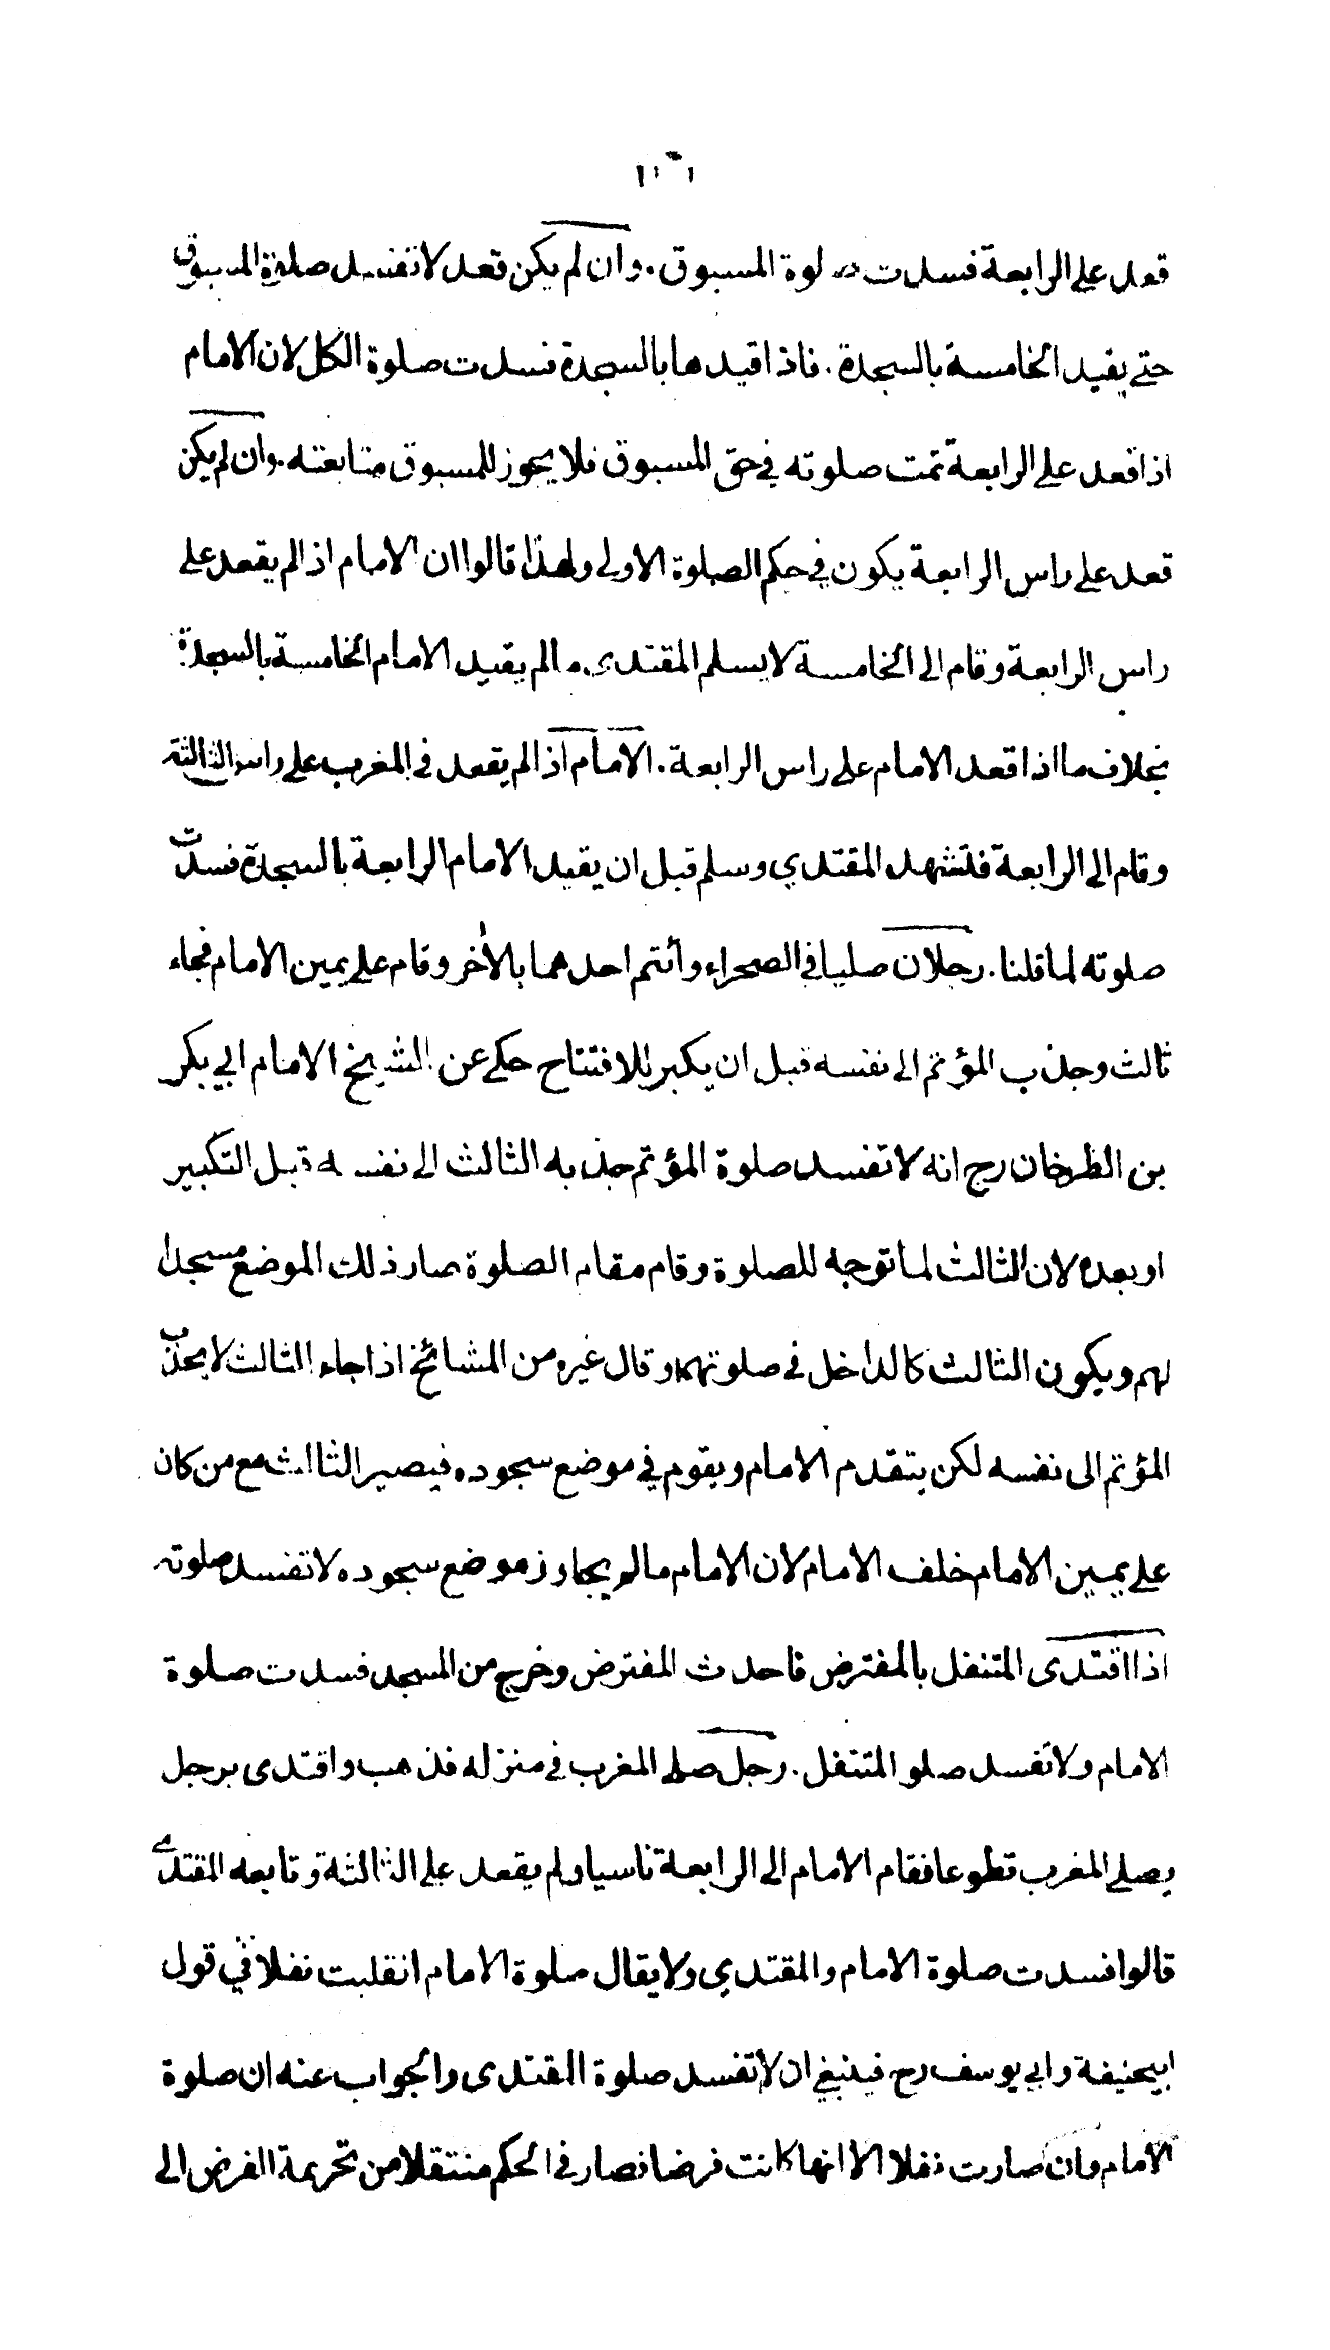 قعد على الرابعة فسدت صلوة المسبوق . وان لم يكن قعد لا تفسد صلوة المسبوق
حتے يقيد الخامسة بالسجدة . فاذا قيدها بالسجدة فسدت صلوة الكل لان الامام
اذا قعد على الرابعة تمت صلوته في حق المسبوق فلا يجوز للمسبوق متابعته . وان لم يكن
قعد على راس الرابعة يكون في حكم الصلوة الاولى ولهذا قالوا ان الامام اذا لم يقعد على
راس الرابعة وقام الى الخامسة لا يسلم المقتدي ما لم يقيد الامام الخامسة بالسجدة
بخلاف ما اذا قعد الامام على راس الرابعة . الامام اذا لم يقعد في المغرب على راس الثالثة
وقام الى الرابعة فتشهد المقتدي وسلم قبل ان يقيد الامام الرابعة بالسجدة فسدت
صلوته لما قلنا . رجلان صليا في الصحراء وأتم احدهما بالآخر وقام على يمين الامام فجاء
ثالث وجذب المؤتم الى نفسه قبل ان يكبر للافتتاح حكے عن الشيخ الامام ابي بكر
بن الطرخان رح انه لا تفسد صلوة المؤتم جذبه الثالث الى نفسه قبل التكبير
او بعده لان الثالث لما توجه للصلوة وقام مقام الصلوة صار ذلك الموضع مسجدا
لهم ويكون الثالث كالداخل في صلوتهما وقال غيره من المشائخ اذا جاء الثالث لا يجذب
المؤتم الى نفسه لكن يتقدم الامام ويقوم في موضع سجوده فيصير الثالث مع من كان
على يمين الامام خلف الامام لان الامام مالم يجاوز موضع سجوده لا تفسد صلوته
اذا اقتدى المتنفل بالمفترض فاحدث المفترض وخرج من المسجد فسدت صلوة
الامام ولا تفسد صلو المتنفل . رجل صلى المغرب في منزله فذهب واقتدى برجل
يصلي المغرب تطوعا فقام الامام الى الرابعة ناسيا ولم يقعد على الثالثة وتابعه المقتدي
قالوا فسدت صلوة الامام والمقتدي ولا يقال صلوة الامام انقلبت نفلا في قول
ابيحنيفة وابي يوسف رح فينبغي ان لا تفسد صلوة المقتدى والجواب عنه ان صلوة
الامام وان صارت نفلا الا انها كانت فرضا فصار في الحكم منتقلا من تحريمة الفرض الى